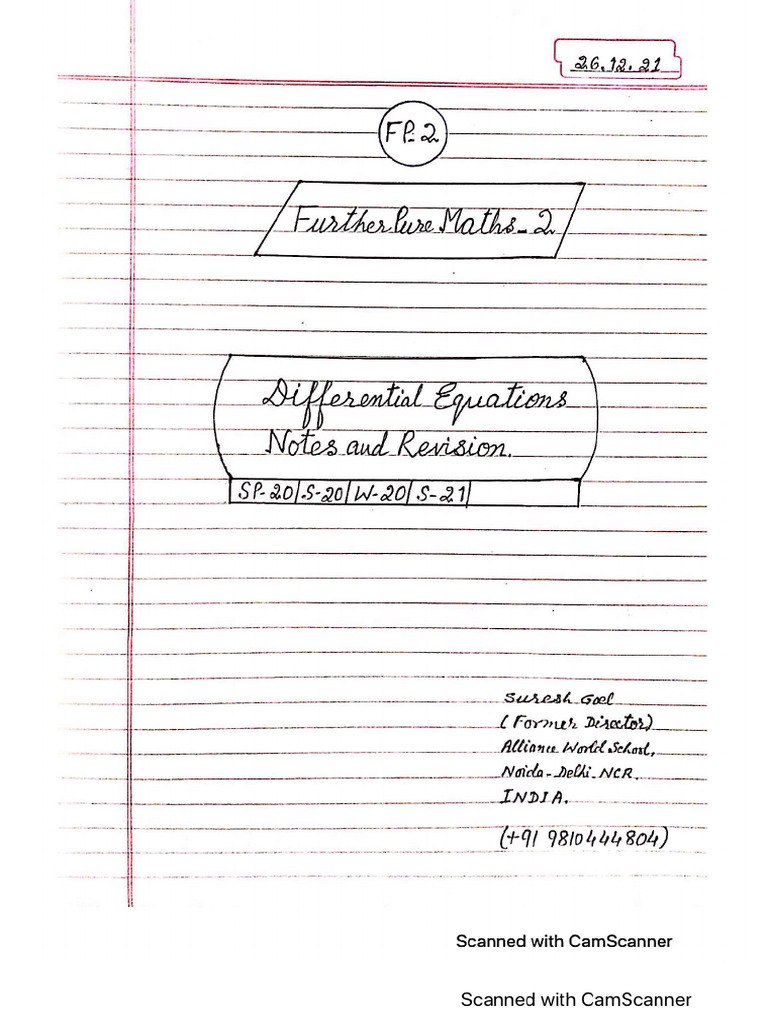 26.12.21
FP-2
Further Pure Maths-2
Differential Equations
Notes and Revision.
SP-20/S-20/W-20/S-21/
Suresh Goel
(Former Director)
Alliance World School,
Noida-Delhi-NCR.
INDIA.
(+91 9810444804)
Scanned with CamScanner
Scanned with CamScanner